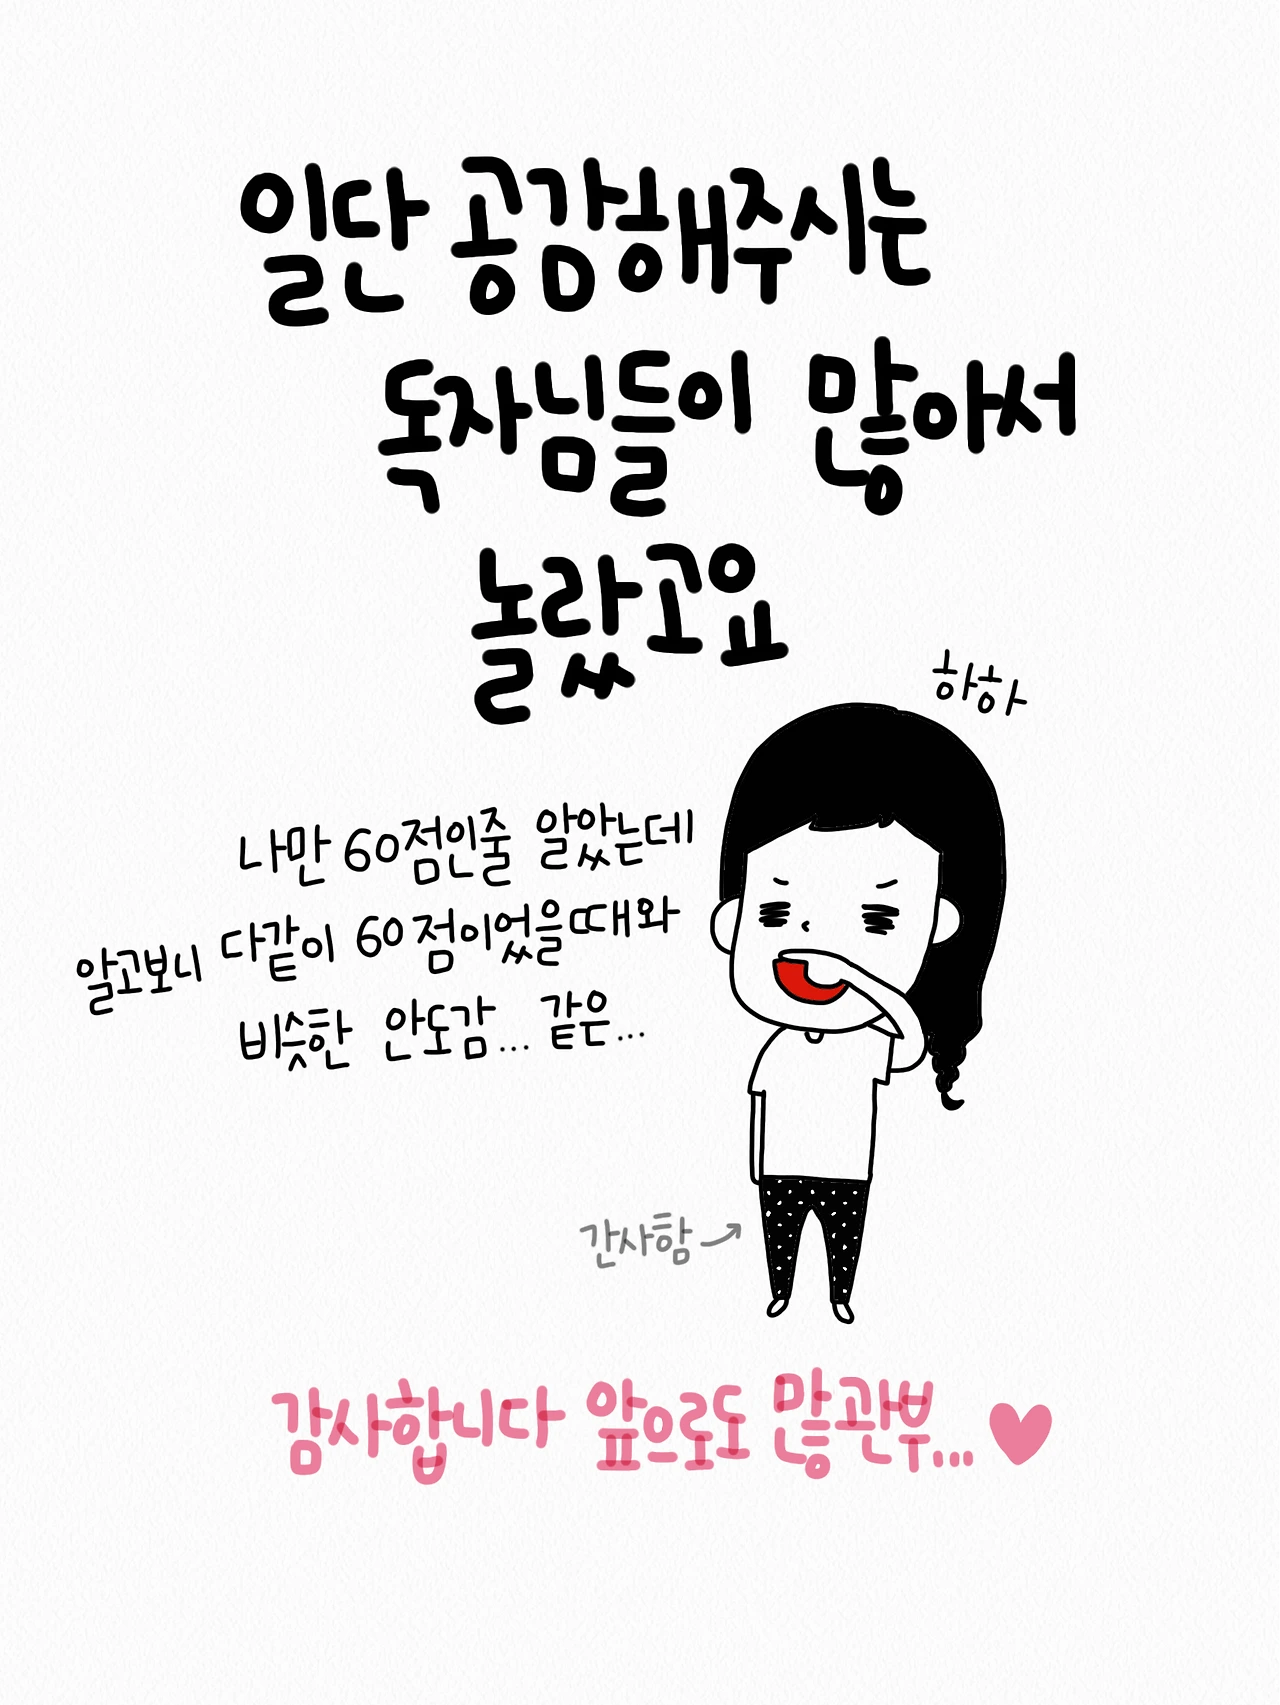 일단 공감해주시는
독자님들이 많아서
놀랐고요
하하
나만 60점인줄 알았는데
알고보니 다같이 60점이었을때와
비슷한 안도감... 같은...
간사함
감사합니다 앞으로도 많관부...